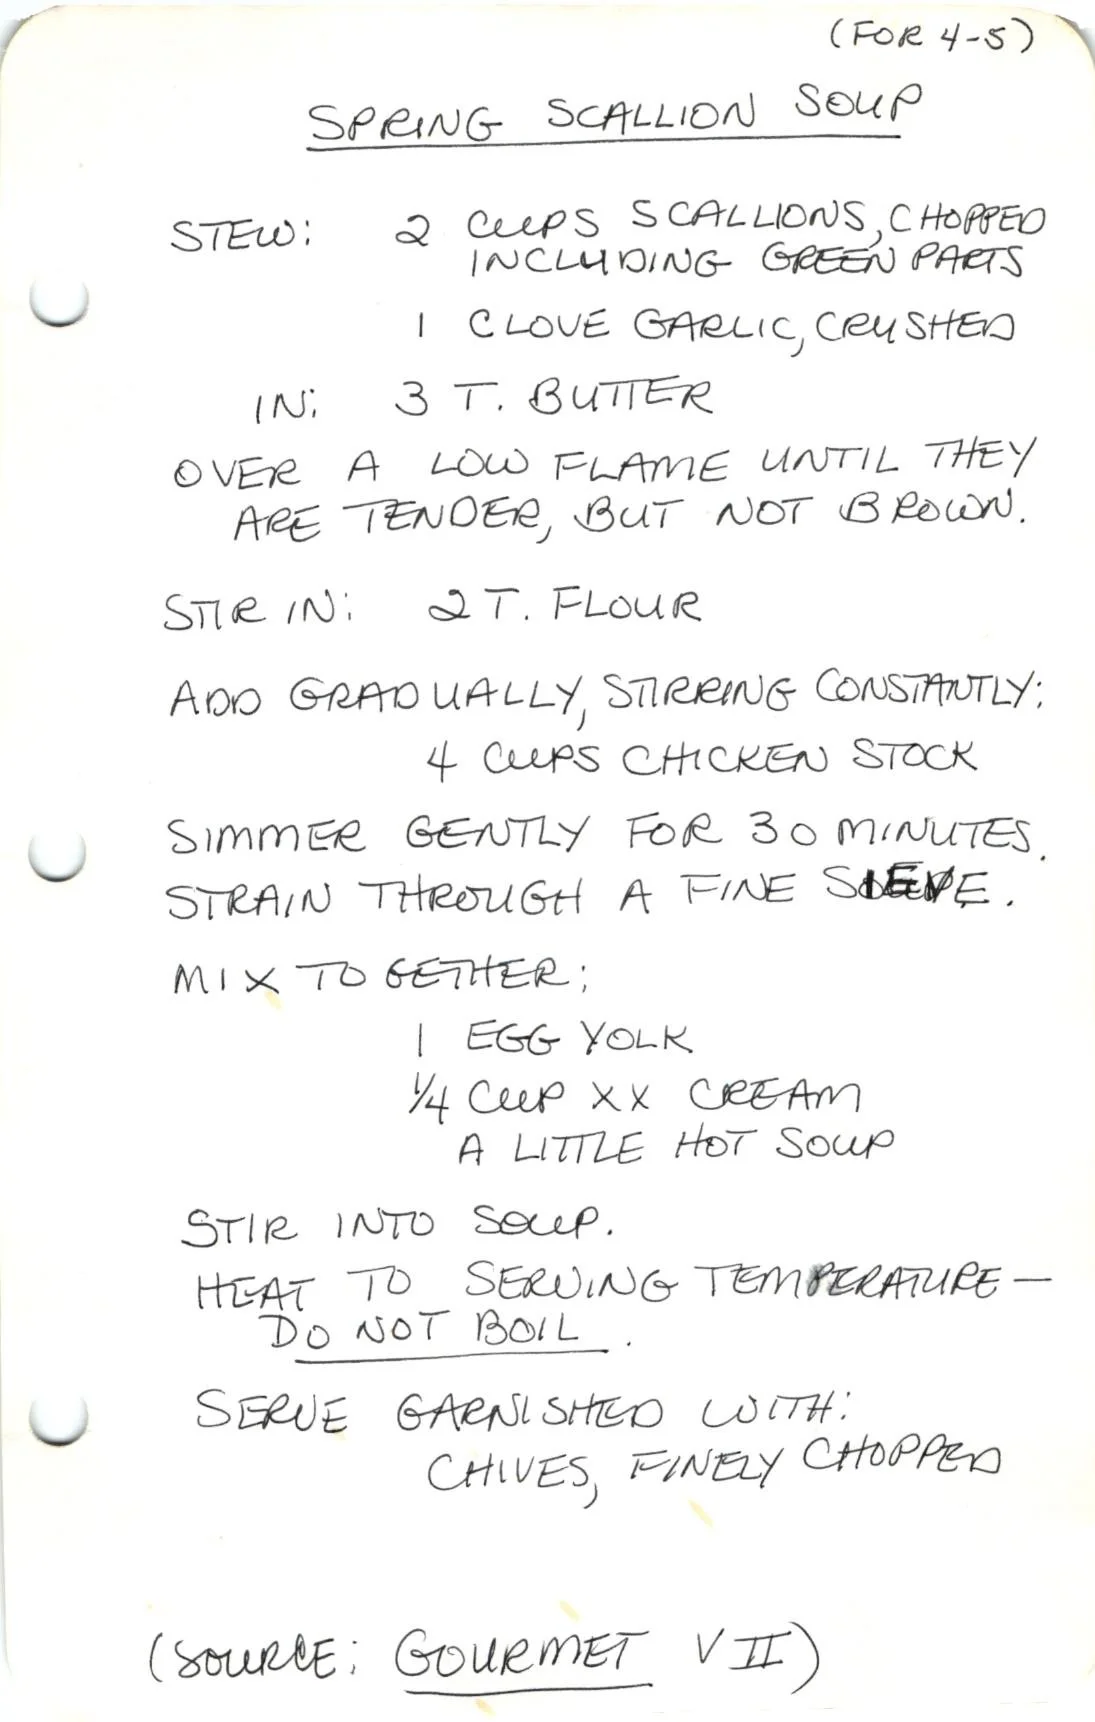 (FOR 4-5)
SPRING SCALLION SOUP
STEW: 2 CUPS SCALLIONS, CHOPPED
INCLUDING GREEN PARTS
1 CLOVE GARLIC, CRUSHED
IN: 3 T. BUTTER
OVER A LOW FLAME UNTIL THEY
ARE TENDER, BUT NOT BROWN.
STIR IN: 2 T. FLOUR
ADD GRADUALLY, STIRRING CONSTANTLY:
4 CUPS CHICKEN STOCK
SIMMER GENTLY FOR 30 MINUTES.
STRAIN THROUGH A FINE SIEVE.
MIX TOGETHER:
1 EGG YOLK
1/4 CUP XX CREAM
A LITTLE HOT SOUP
STIR INTO SOUP.
HEAT TO SERVING TEMPERATURE —
DO NOT BOIL.
SERVE GARNISHED WITH:
CHIVES, FINELY CHOPPED
(SOURCE: GOURMET VII)